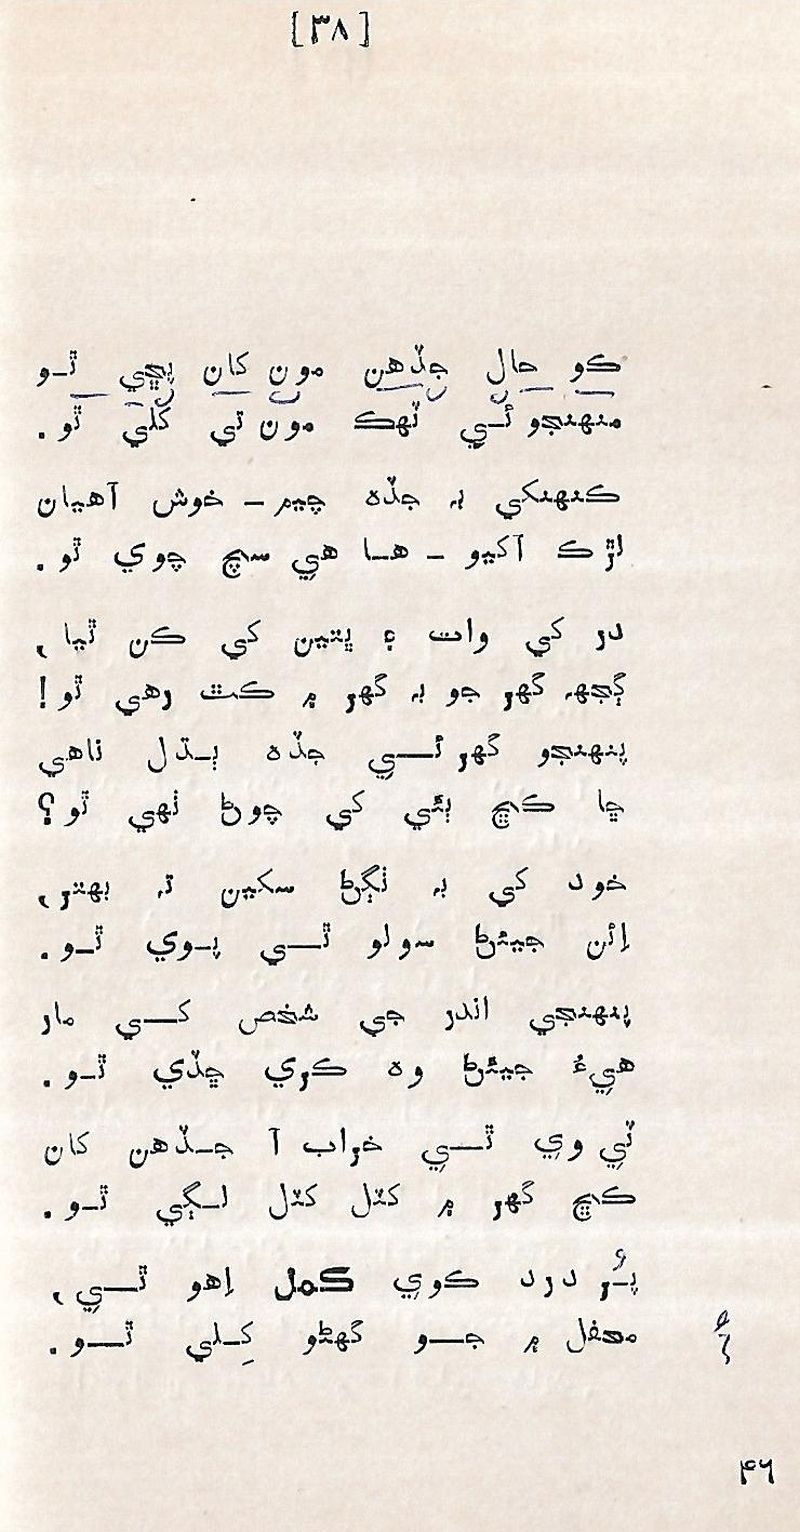 [۳۸]
ڪو حال جڏهن مون کان پڇي ٿو
منهنجو ئي ٽهڪ مون تي کلي ٿو.
ڪنهنکي بہ جڏه چيم – خوش آهيان
لڙڪ آکيو – هـا هي سچ چوي ٿو.
در کي وات ۽ ڀتين کي ڪن ٿيا،
ڳجهہ گهر جو بہ گهر ۾ ڪٿ رهي ٿو!
پنهنجو گهر ئي جڏه ٻـڌل ناهي
ڇا ڪڇ ٻئي کي چوڻ ٺهي ٿو؟
خود کي بہ ٺڳڻ سکين تہ بهتر،
اِئن جيئڻ سولو ٿـي پـوي ٿـو.
پنهنجي اندر جي شخص کـي مار
هيءُ جيئڻ وه ڪري ڇڏي ٿـو.
ٽي وي ٿـي خراب آ جـڏهن کان
ڪڇ گهر ۾ کٽل کٽل لـڳي ٿـو.
پـُر درد ڪوي ڪمل اِهو ٿـي،
محفل ۾ جـو گهڻو کِـلي ٿـو.
۴۶